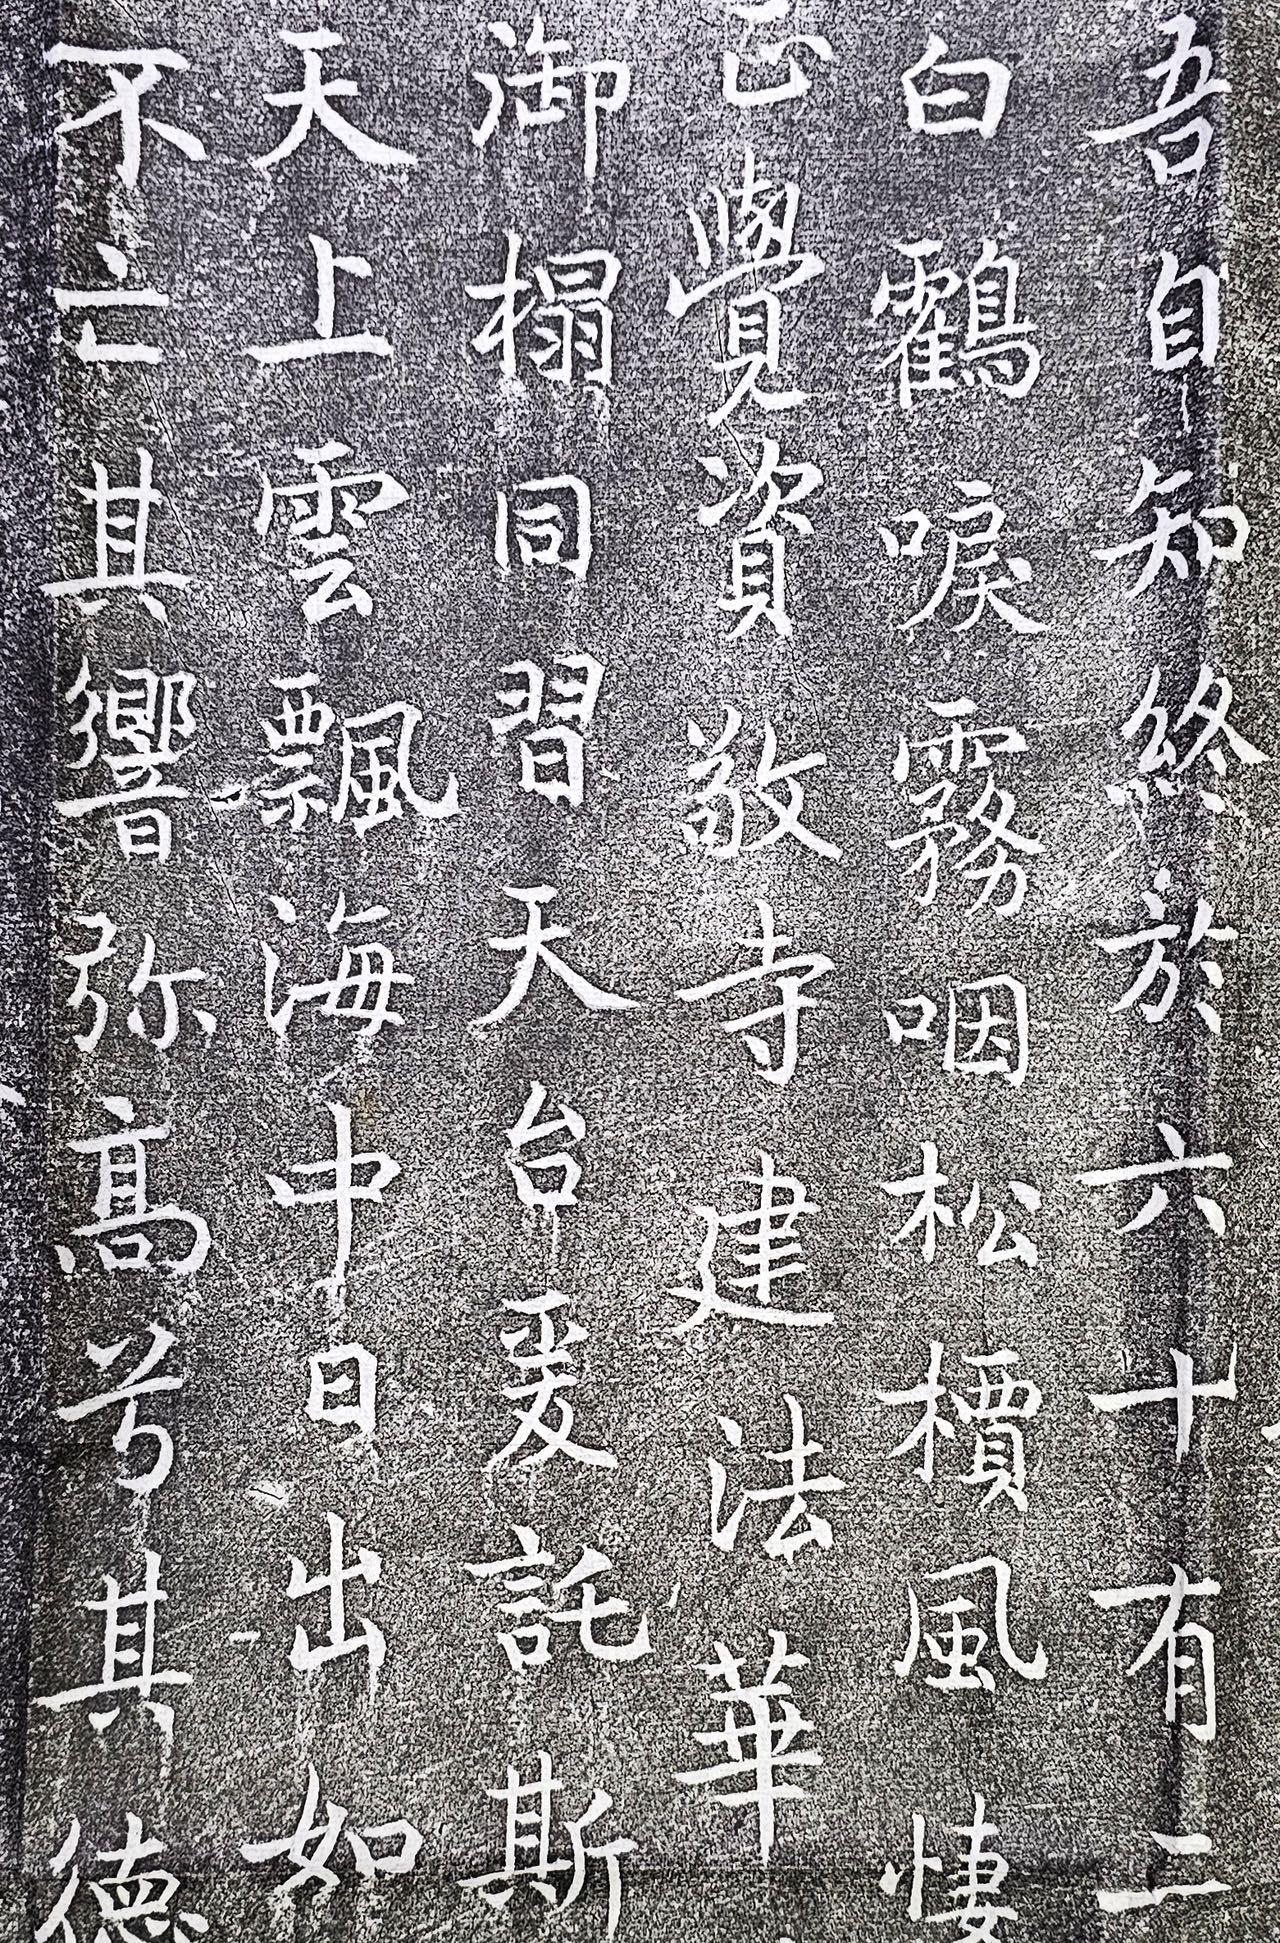 吾自知終於六十有二
白鸖唳霧咽松檟風悽
正覺資敬寺建法華
御榻同習天台爰託斯
天上雲飄海中日出如
不亡其響弥高兮其德